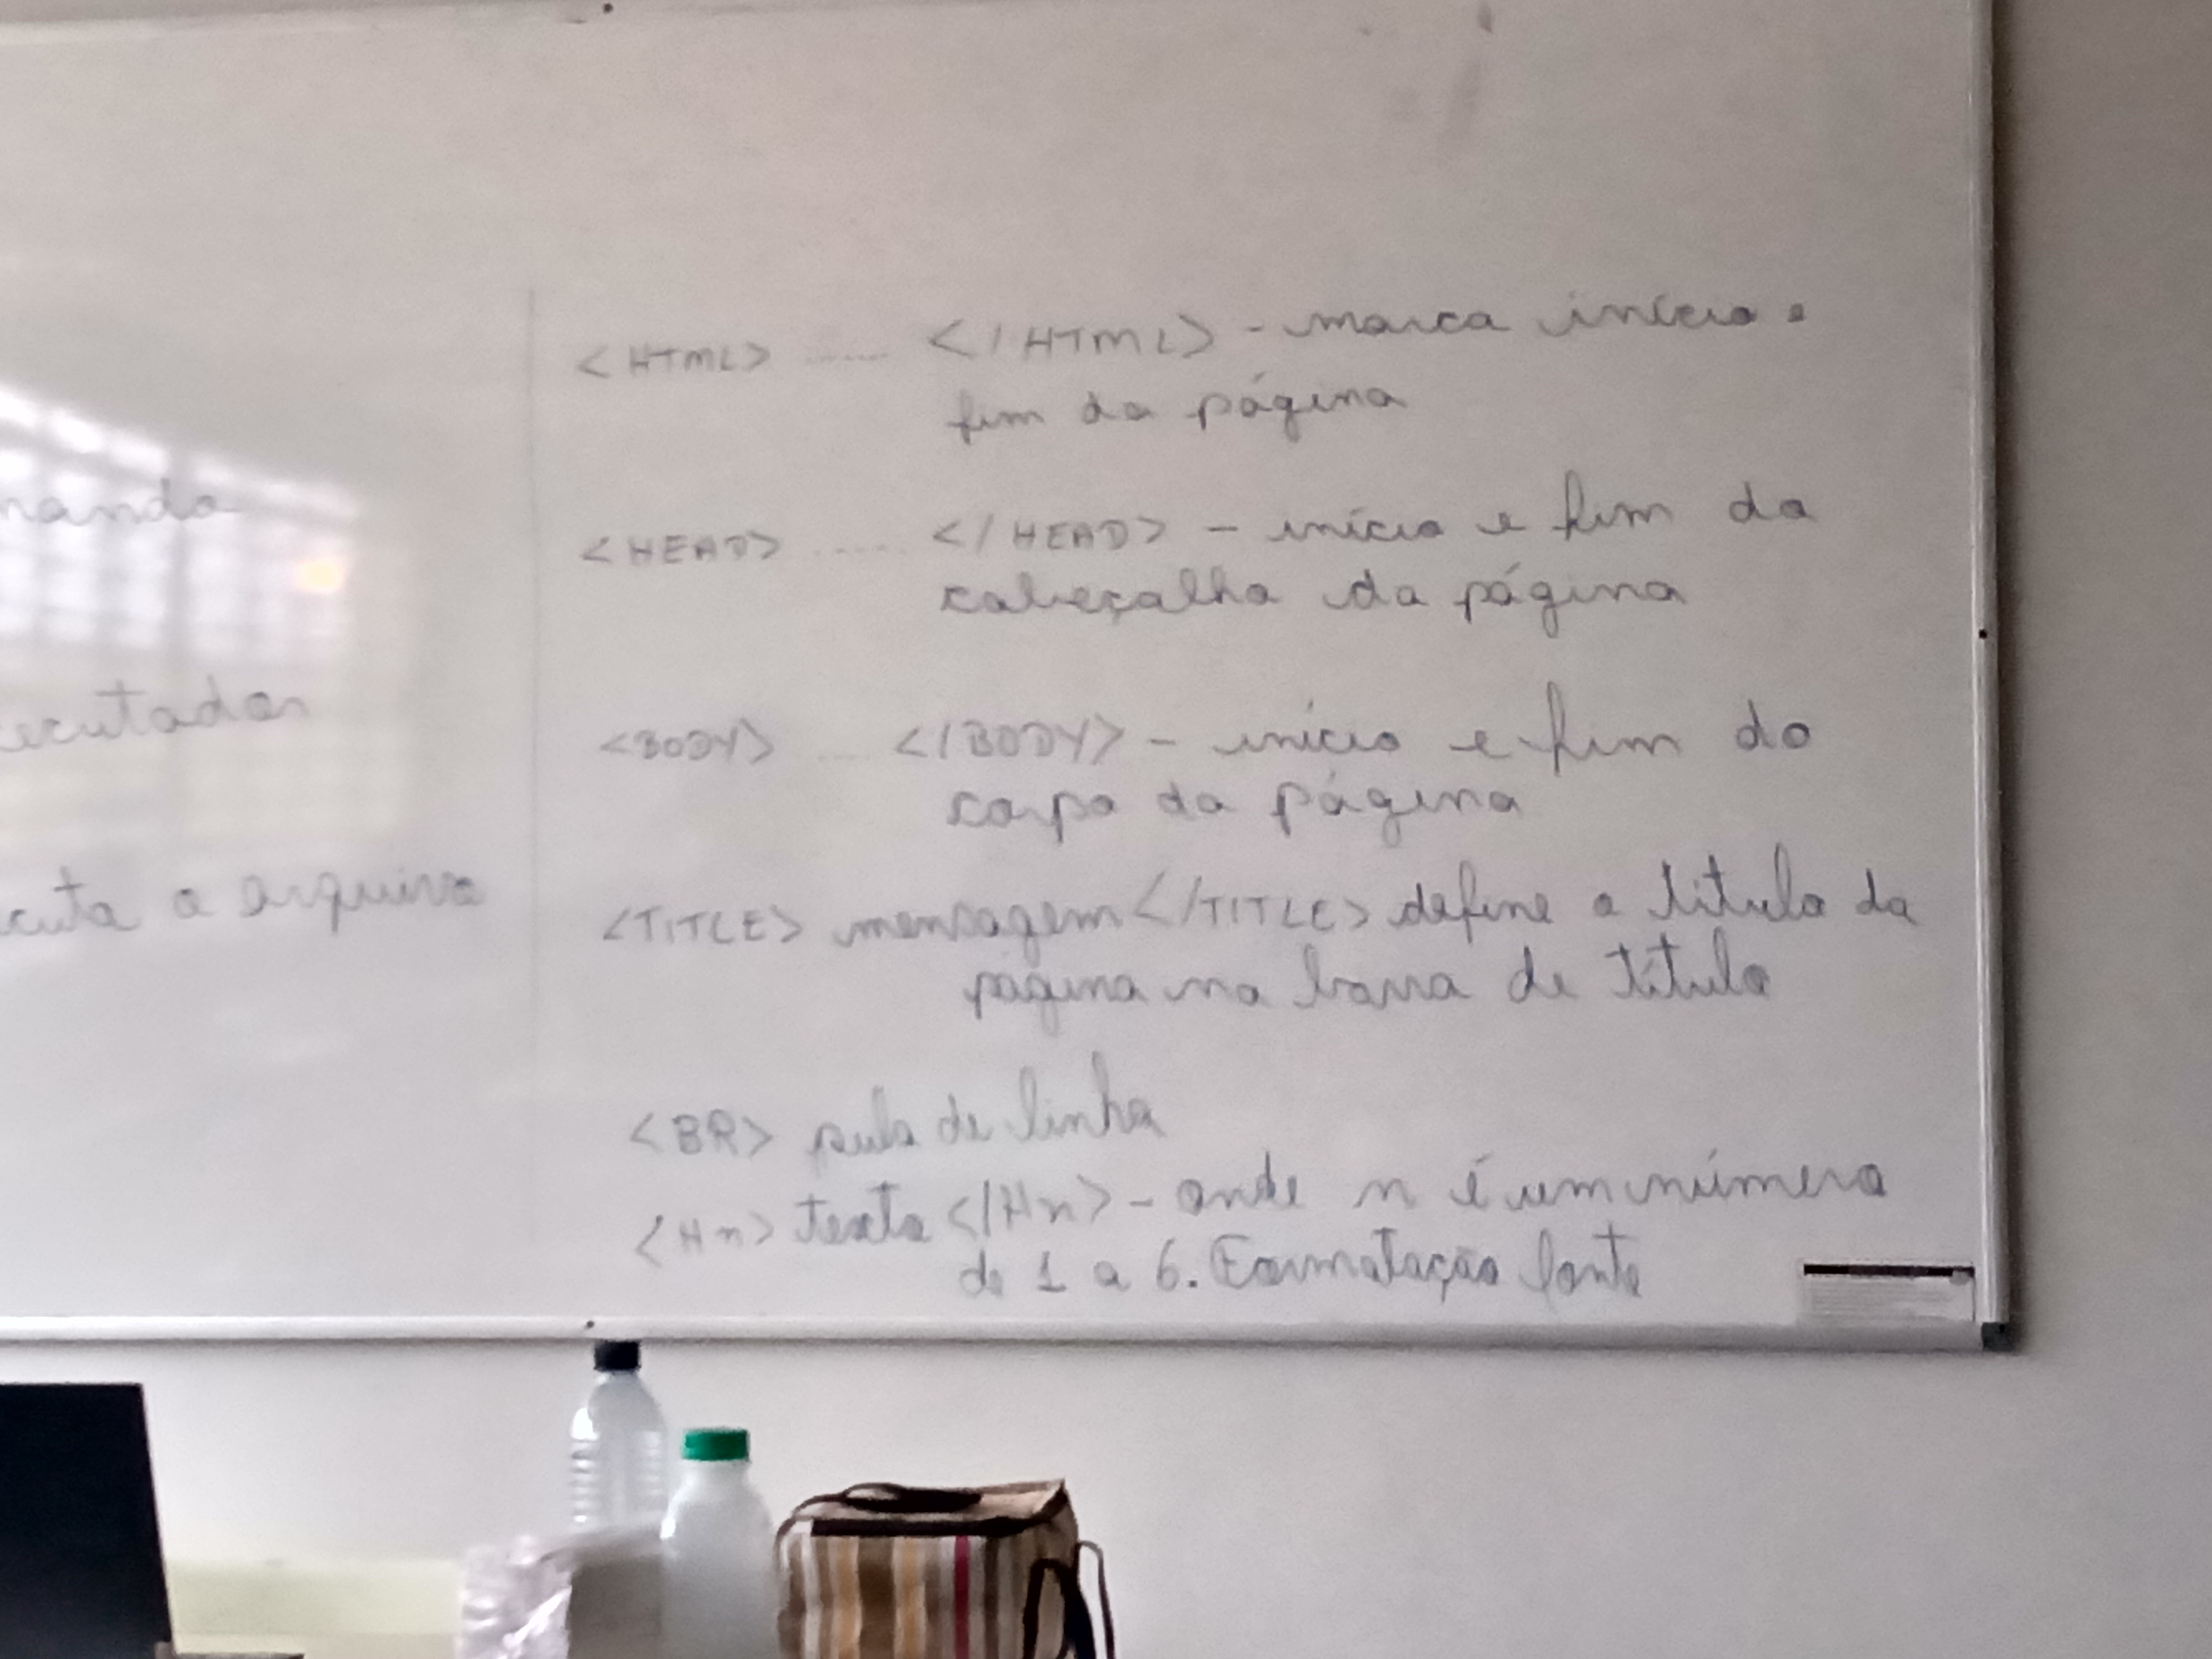 cuta o arquivo
<HTML> ...... </HTML> - marca início e
fim da página
<HEAD> ...... </HEAD> - início e fim do
cabeçalho da página
<BODY> .... </BODY> - início e fim do
corpo da página
<TITLE> mensagem </TITLE> define o título da
página na barra de título
<BR> pula de linha
<Hn> texto </Hn> - onde n é um número
de 1 a 6. Formatação fonte